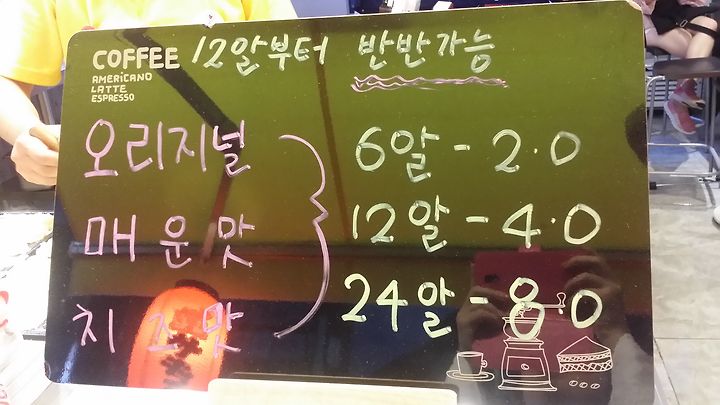 COFFEE
AMERICANO
LATTE
ESPRESSO
12알부터 반반가능
오리지널
매운맛
치즈맛
6알 - 2.0
12알 - 4.0
24알 - 8.0